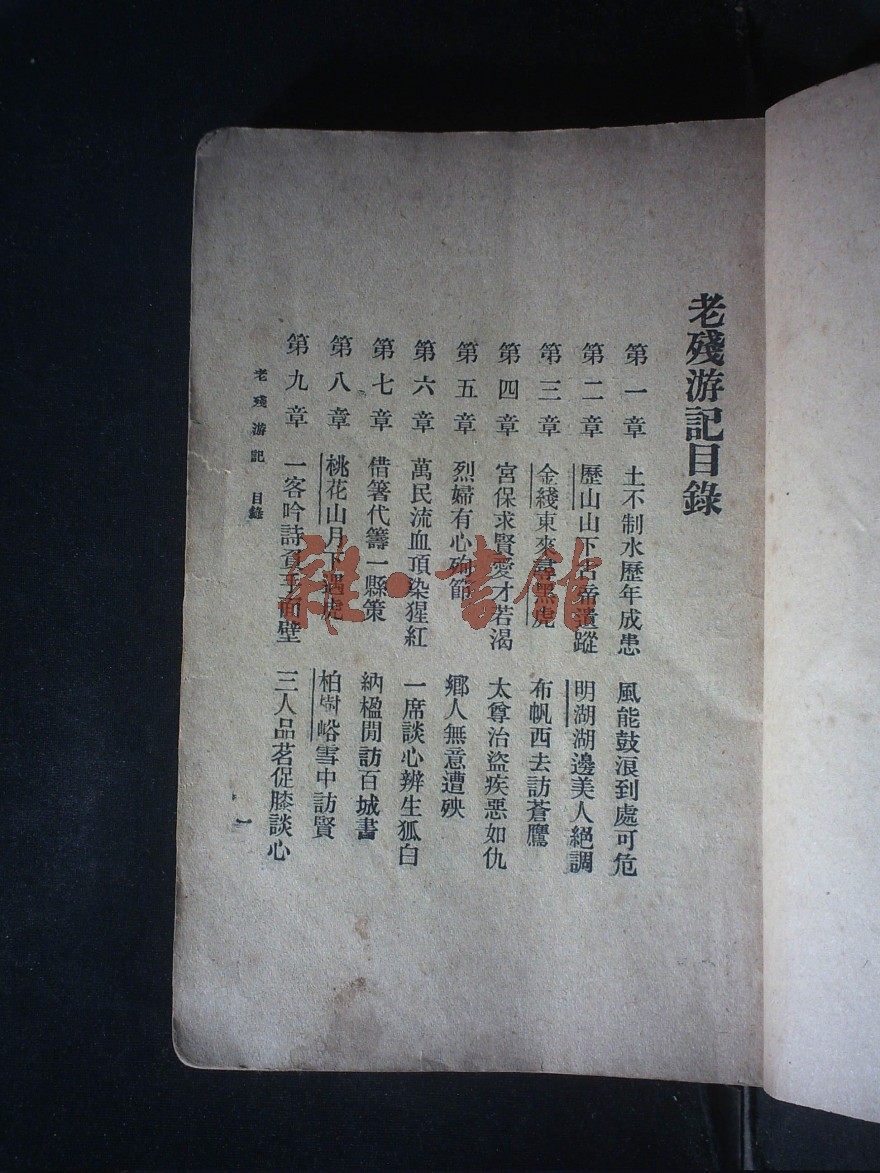 老殘游記目錄
第一章　土不制水歷年成患　風能鼓浪到處可危
第二章　歷山山下古帝遺蹤　明湖湖邊美人絕調
第三章　金綫東來尋黑虎　布帆西去訪蒼鷹
第四章　宮保求賢愛才若渴　太尊治盜疾惡如仇
第五章　烈婦有心殉節　鄉人無意遭殃
第六章　萬民流血頂染猩紅　一席談心辨生狐白
第七章　借箸代籌一縣策　納楹閒訪百城書
第八章　桃花山月下遇虎　柏樹峪雪中訪賢
第九章　一客吟詩負手面壁　三人品茗促膝談心
老殘游記　目錄
一
雜·書館